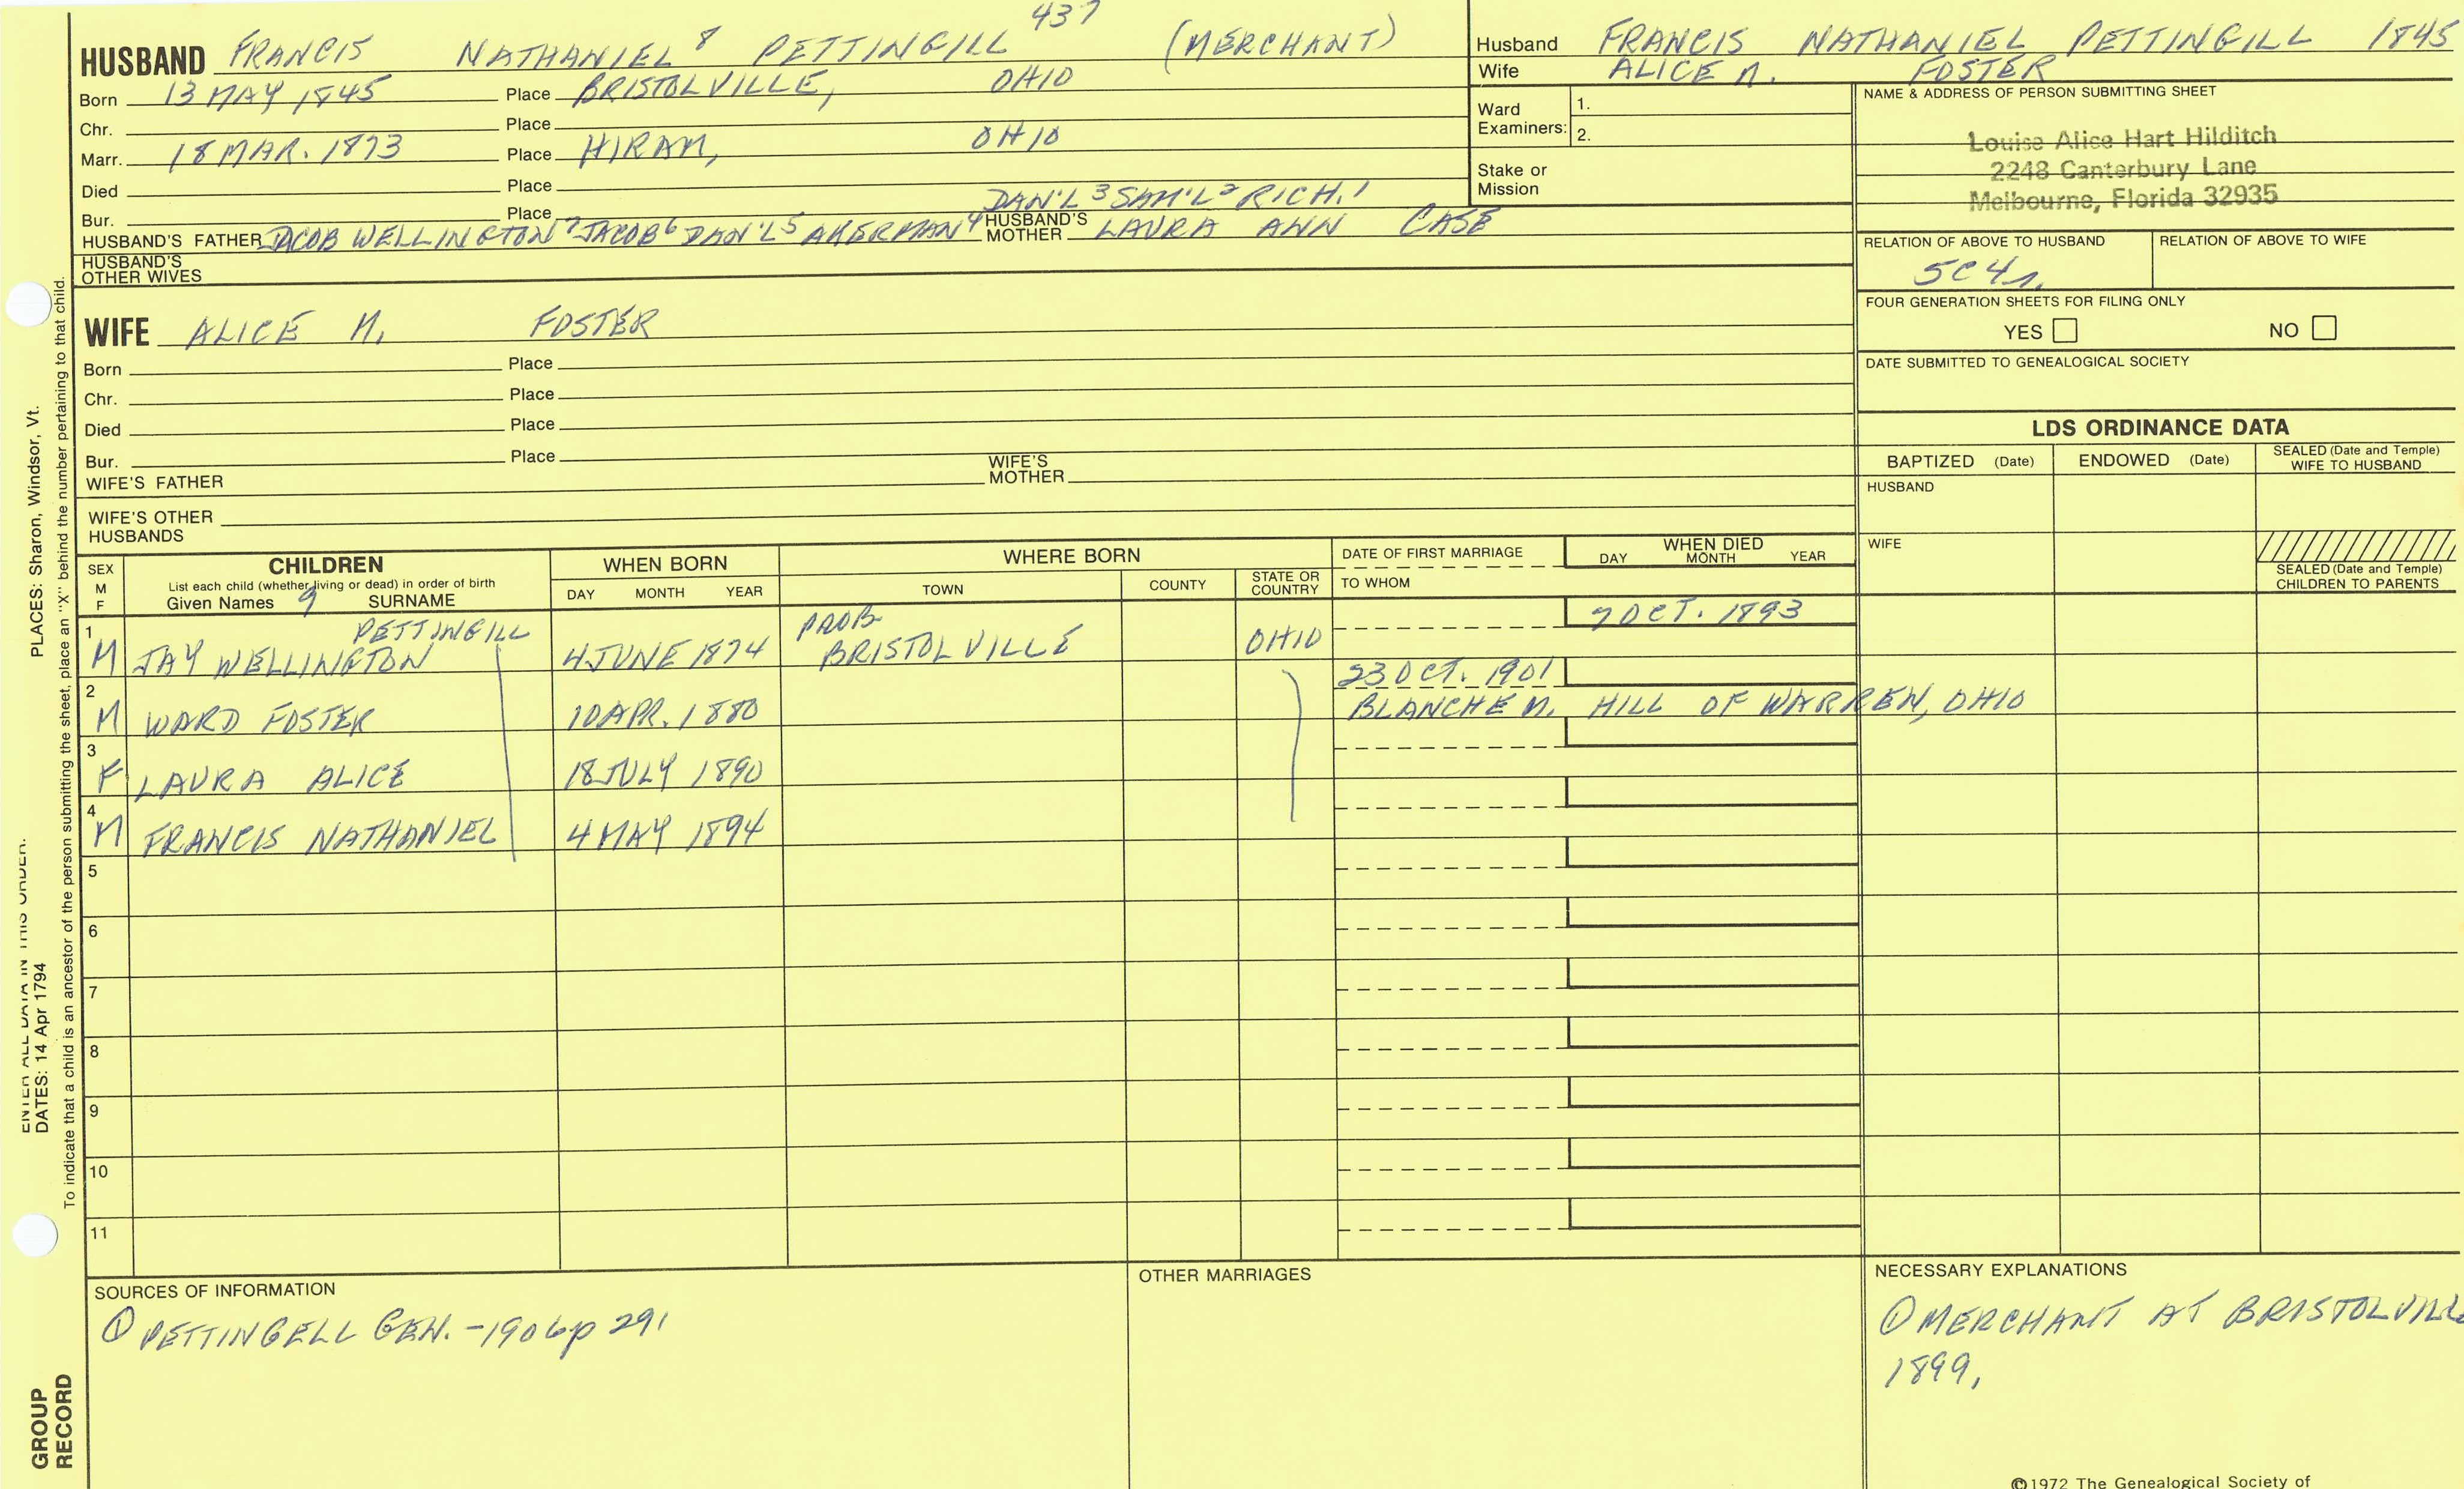 HUSBAND FRANCIS NATHANIEL 8 PETTINGILL 437 (MERCHANT)
Born 13 MAY 1845 Place BRISTOLVILLE, OHIO
Chr. Place
Marr. 18 MAR. 1873 Place HIRAM, OHIO
Died Place
Bur. Place DAN'L 3 SAM'L 2 RICH. 1
HUSBAND'S FATHER JACOB WELLINGTON 7 JACOB 6 DAN'L 5 AKERMAN 4 HUSBAND'S MOTHER LAURA ANN CASE
HUSBAND'S OTHER WIVES
Husband FRANCIS NATHANIEL PETTINGILL 1845
Wife ALICE M. FOSTER
Ward Examiners: 1.
2.
Stake or Mission
NAME & ADDRESS OF PERSON SUBMITTING SHEET
Louise Alice Hart Hilditch
2248 Canterbury Lane
Melbourne, Florida 32935
RELATION OF ABOVE TO HUSBAND RELATION OF ABOVE TO WIFE
5C4r.
FOUR GENERATION SHEETS FOR FILING ONLY
YES NO
DATE SUBMITTED TO GENEALOGICAL SOCIETY
WIFE ALICE M. FOSTER
Born Place
Chr. Place
Died Place
Bur. Place
WIFE'S FATHER WIFE'S MOTHER
WIFE'S OTHER HUSBANDS
LDS ORDINANCE DATA
BAPTIZED (Date) ENDOWED (Date) SEALED (Date and Temple) WIFE TO HUSBAND
HUSBAND
WIFE
SEALED (Date and Temple) CHILDREN TO PARENTS
SEX M F
CHILDREN
List each child (whether living or dead) in order of birth
Given Names 9 SURNAME
WHEN BORN
DAY MONTH YEAR
WHERE BORN
TOWN COUNTY STATE OR COUNTRY
DATE OF FIRST MARRIAGE
TO WHOM
WHEN DIED
DAY MONTH YEAR
1 PETTINGILL PROB. 7 OCT. 1893
M JAY WELLINGTON 4 JUNE 1874 BRISTOLVILLE OHIO
2 23 OCT. 1901
M WARD FOSTER 10 APR. 1880 BLANCHE M. HILL OF WARREN, OHIO
3
F LAURA ALICE 18 JULY 1890
4
M FRANCIS NATHANIEL 4 MAY 1894
5
6
7
8
9
10
11
SOURCES OF INFORMATION
① PETTINGELL GEN. - 1906 p 291
OTHER MARRIAGES
NECESSARY EXPLANATIONS
① MERCHANT AT BRISTOLVILLE
1899,
©1972 The Genealogical Society of
PLACES: Sharon, Windsor, Vt.
ENTER ALL DATA IN THIS ORDER:
DATES: 14 Apr 1794
To indicate that a child is an ancestor of the person submitting the sheet, place an "X" behind the number pertaining to that child.
GROUP RECORD